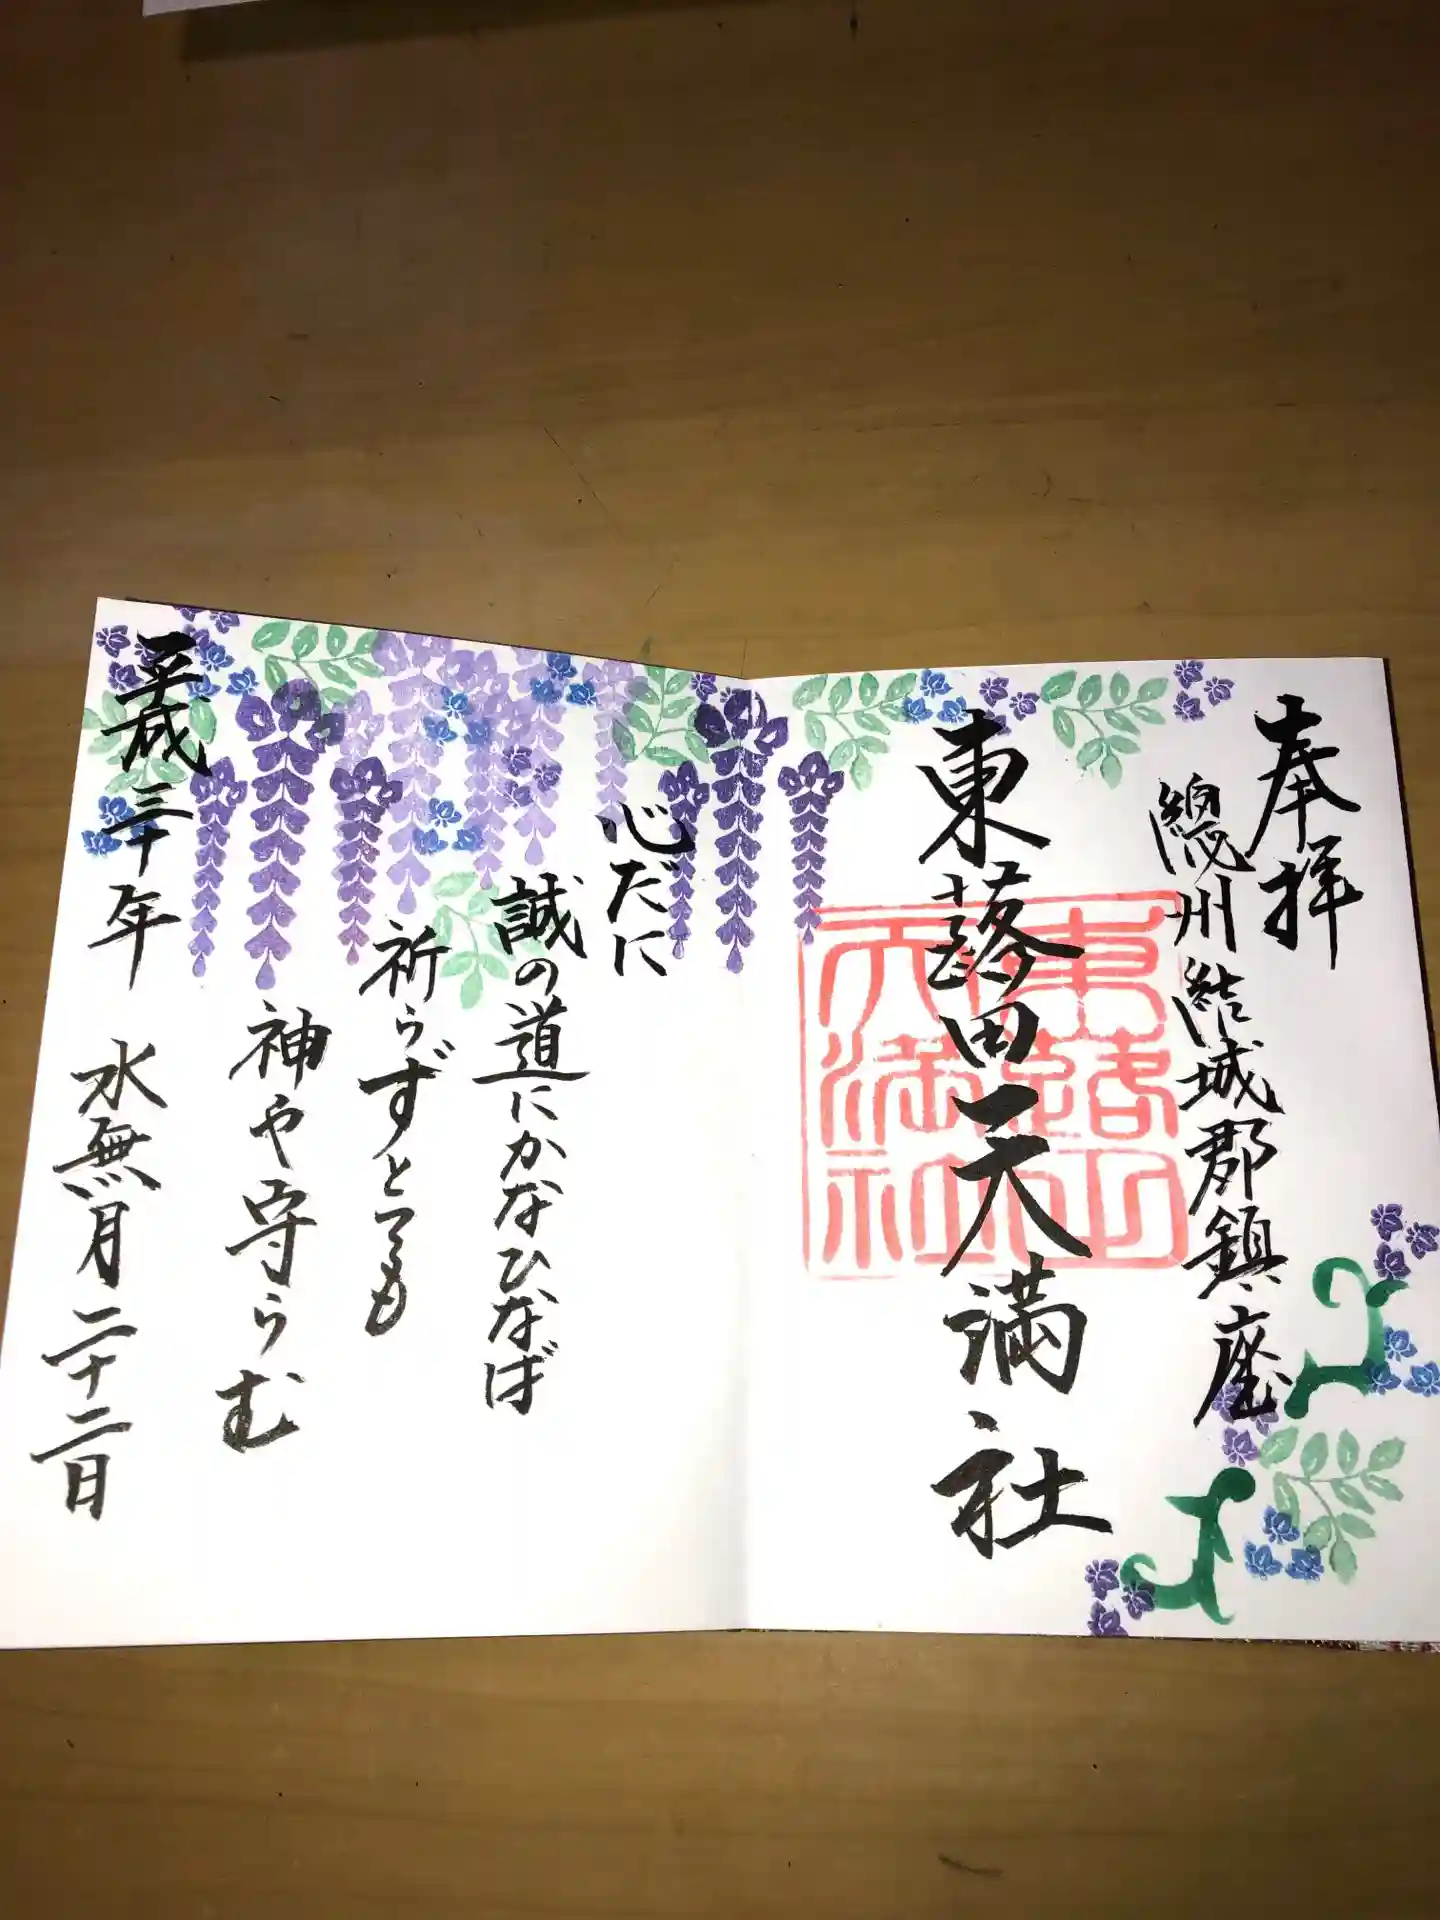 奉拝
總州結城郡鎮座
東蕗田天満社
心だに
誠の道にかなひなば
祈らずとても
神や守らむ
平成三十年 水無月二十二日